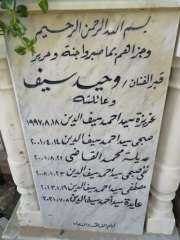 بسم الله الرحمن الرحيم
وجزاهم بما صبروا جنة وحريرا
قبر الفنان / وحيد سيف
وعائلته
عزيزة سيد احمد سيف الدين ١٩٩٧.٨.١٨
صبحى سيد احمد سيف الدين ٢٠٠١.٤.١٤
محمد القاضى
صبحى سيد احمد سيف الدين
مصطفى سيد احمد سيف الدين ٢٠١٣.١.١٩
عايدة سيد احمد سيف الدين